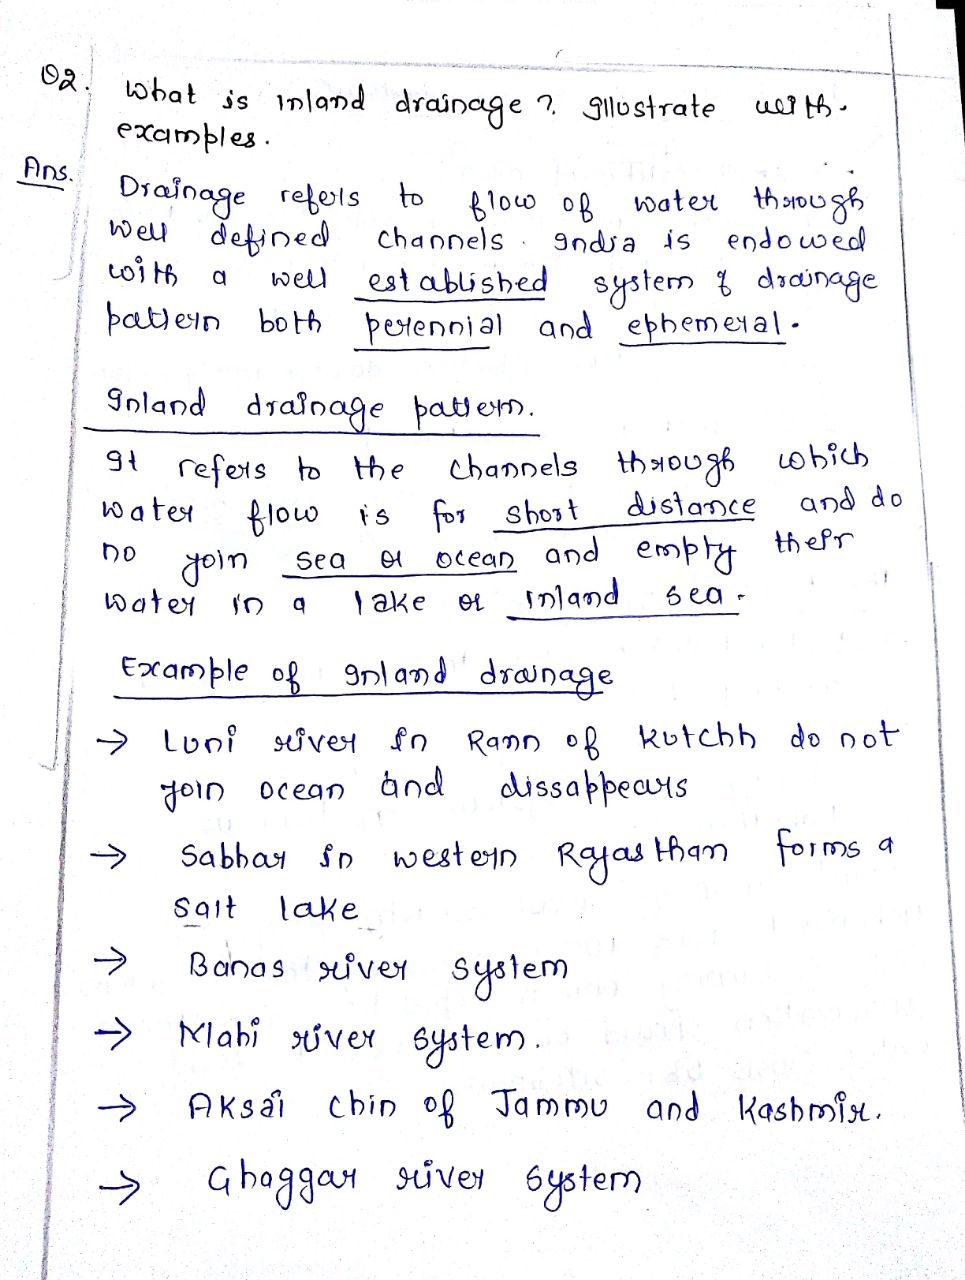 Q2. What is inland drainage? Illustrate with
examples.
Ans. Drainage refers to flow of water through
well defined channels. India is endowed
with a well established system & drainage
pattern both perennial and ephemeral.
Inland drainage pattern.
It refers to the channels through which
water flow is for short distance and do
no join sea or ocean and empty their
water in a lake or inland sea.
Example of Inland drainage
→ Luni river in Rann of Kutchh do not
join ocean and dissappears
→ Sabhar in western Rajasthan forms a
salt lake
→ Banas river system
→ Mahi river system.
→ Aksai chin of Jammu and Kashmir.
→ Ghaggar river system